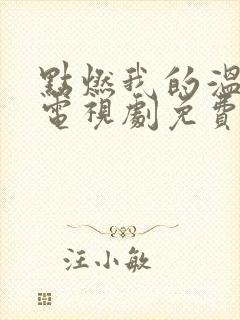 點燃我的溫
電視劇免費
汪小敏